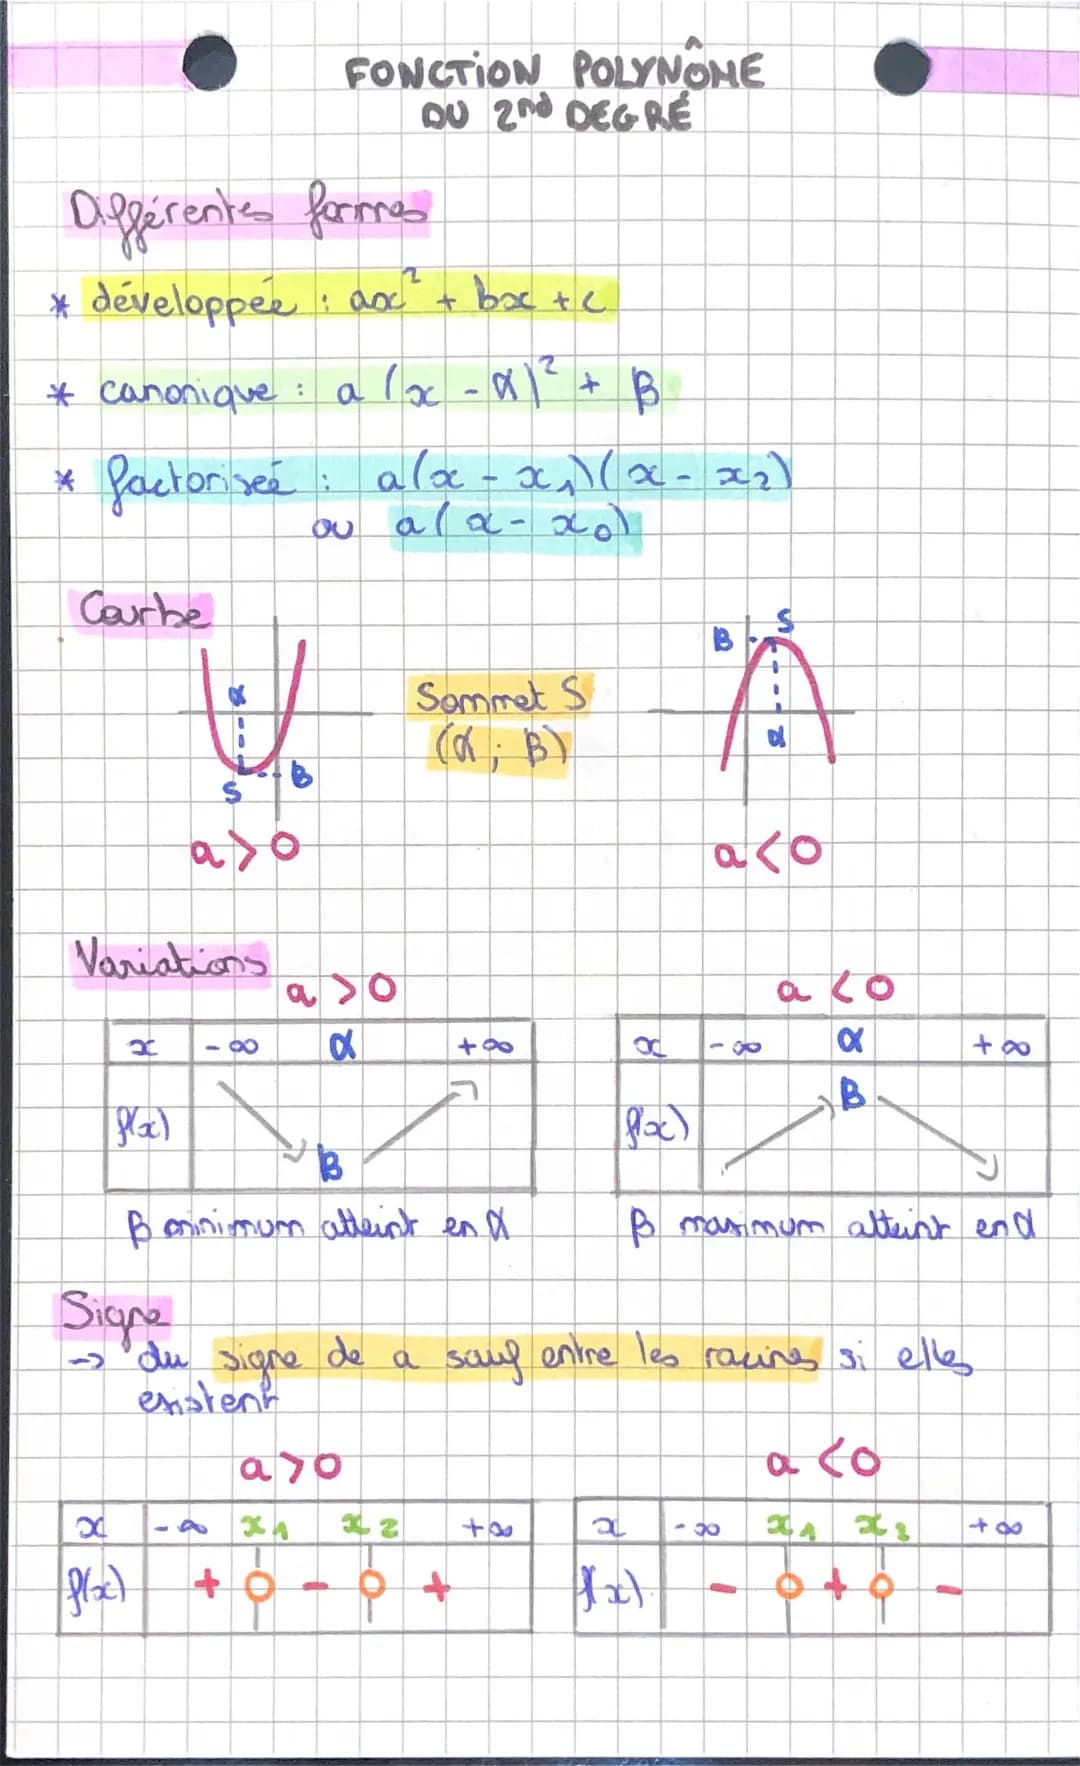 FONCTION POLYNÔME
DU 2nd DEGRÉ
Différentes formes
* développée : ax² + bx + c
* canonique : a (x - α)² + β
* factorisée : a(x - x₁)(x - x₂)
ou a(x - x₀)
Courbe
α
S
β
a > 0
Sommet S
(α ; β)
β
S
α
a < 0
Variations
a > 0
x -∞ α +∞
f(x)
β
β minimum atteint en α
a < 0
x -∞ α +∞
β
f(x)
β maximum atteint en α
Signe
→ du signe de a sauf entre les racines si elles
existent
a > 0
x -∞ x₁ x₂ +∞
f(x) + 0 - 0 +
a < 0
x -∞ x₁ x₂ +∞
f(x) - 0 + 0 -